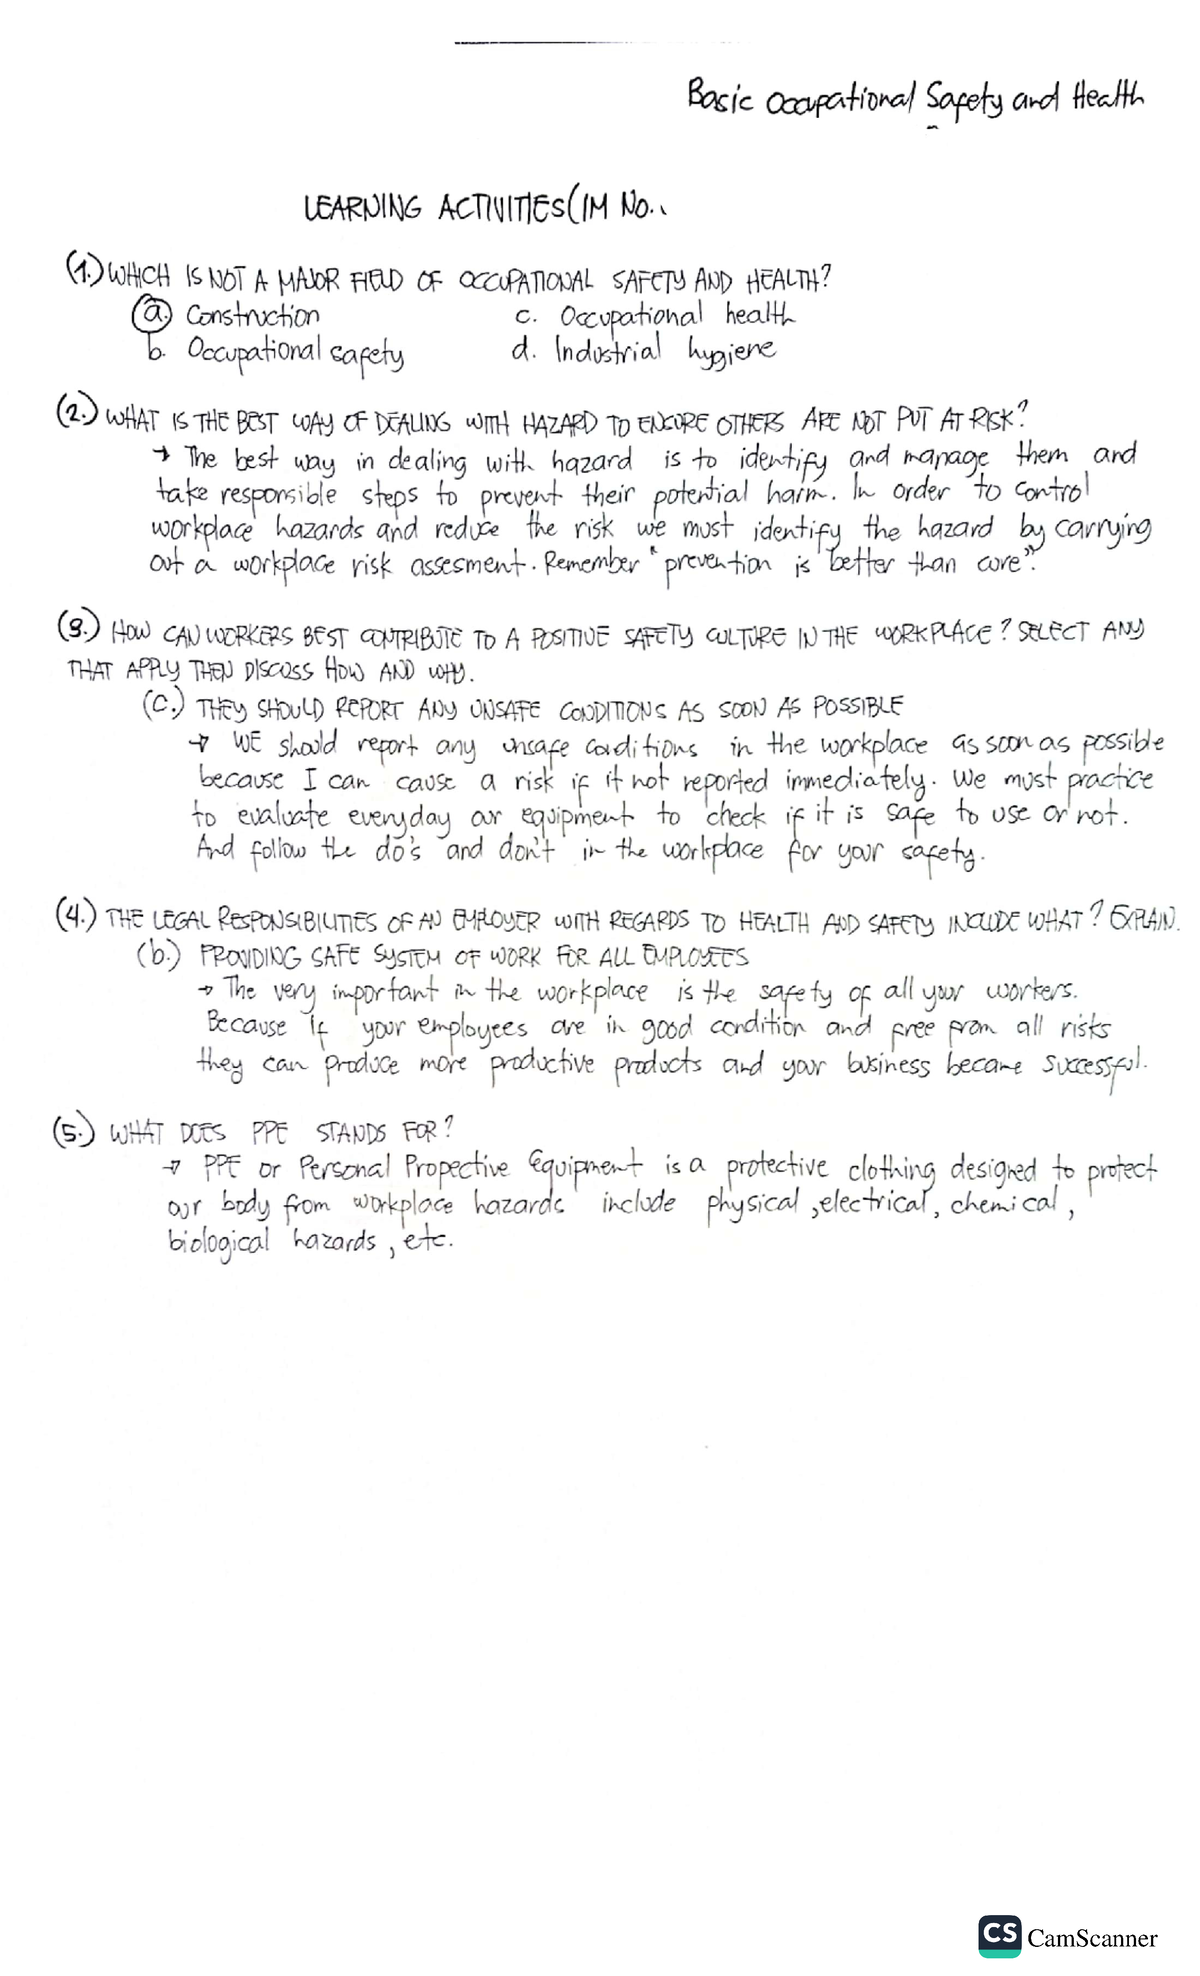 Basic Occupational Safety and Health
LEARNING ACTIVITIES (IM No..
(1.) WHICH IS NOT A MAJOR FIELD OF OCCUPATIONAL SAFETY AND HEALTH?
a. Construction c. Occupational health
b. Occupational safety d. Industrial hygiene
(2.) WHAT IS THE BEST WAY OF DEALING WITH HAZARD TO ENSURE OTHERS ARE NOT PUT AT RISK?
→ The best way in dealing with hazard is to identify and manage them and
take responsible steps to prevent their potential harm. In order to control
workplace hazards and reduce the risk we must identify the hazard by carrying
out a workplace risk assesment. Remember "prevention is better than cure".
(3.) HOW CAN WORKERS BEST CONTRIBUTE TO A POSITIVE SAFETY CULTURE IN THE WORKPLACE? SELECT ANY
THAT APPLY THEN DISCUSS HOW AND WHY.
(C.) THEY SHOULD REPORT ANY UNSAFE CONDITIONS AS SOON AS POSSIBLE
→ WE should report any unsafe conditions in the workplace as soon as possible
because I can cause a risk if it not reported immediately. We must practice
to evaluate everyday our equipment to check if it is safe to use or not.
And follow the do's and don't in the workplace for your safety.
(4.) THE LEGAL RESPONSIBILITIES OF AN EMPLOYER WITH REGARDS TO HEALTH AND SAFETY INCLUDE WHAT? EXPLAIN.
(b.) PROVIDING SAFE SYSTEM OF WORK FOR ALL EMPLOYEES
→ The very important in the workplace is the safety of all your workers.
Because if your employees are in good condition and free from all risks
they can produce more productive products and your business became successful.
(5.) WHAT DOES PPE STANDS FOR?
→ PPE or Personal Propective Equipment is a protective clothing designed to protect
our body from workplace hazards include physical, electrical, chemical,
biological hazards, etc.
CS CamScanner